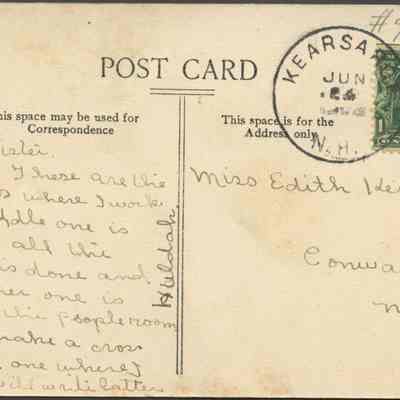 POST CARD
KEARSAR
JUN
N.H.
This space may be used for
Correspondence
This space is for the
Address only
ister.
These are the
s where I work
ddle one is
all the
is done and
her one is
the people room
make a cross
one where I
will write latter
Huldah.
Miss Edith
Conwa